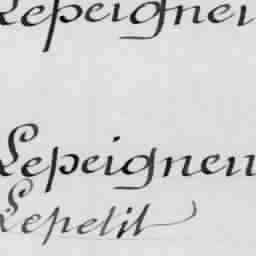 Lepeignei
Lepeigneu
Lepetit